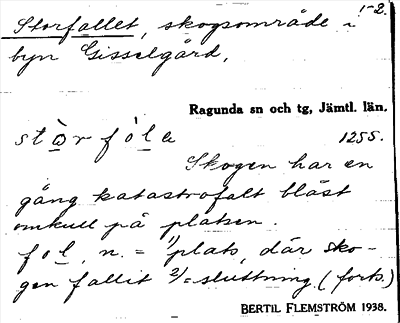 1-2.
Storfallet, skogsområde i
byn Gisselgård.
Ragunda sn och tg, Jämtl. län.
stòrfóla 1255.
Skogen har en
gång katastrofalt blåst
omkull på platsen.
fol, n. = 1/plats, där sko-
gen fallit 2/=sluttning. (forts.)
BERTIL FLEMSTRÖM 1938.